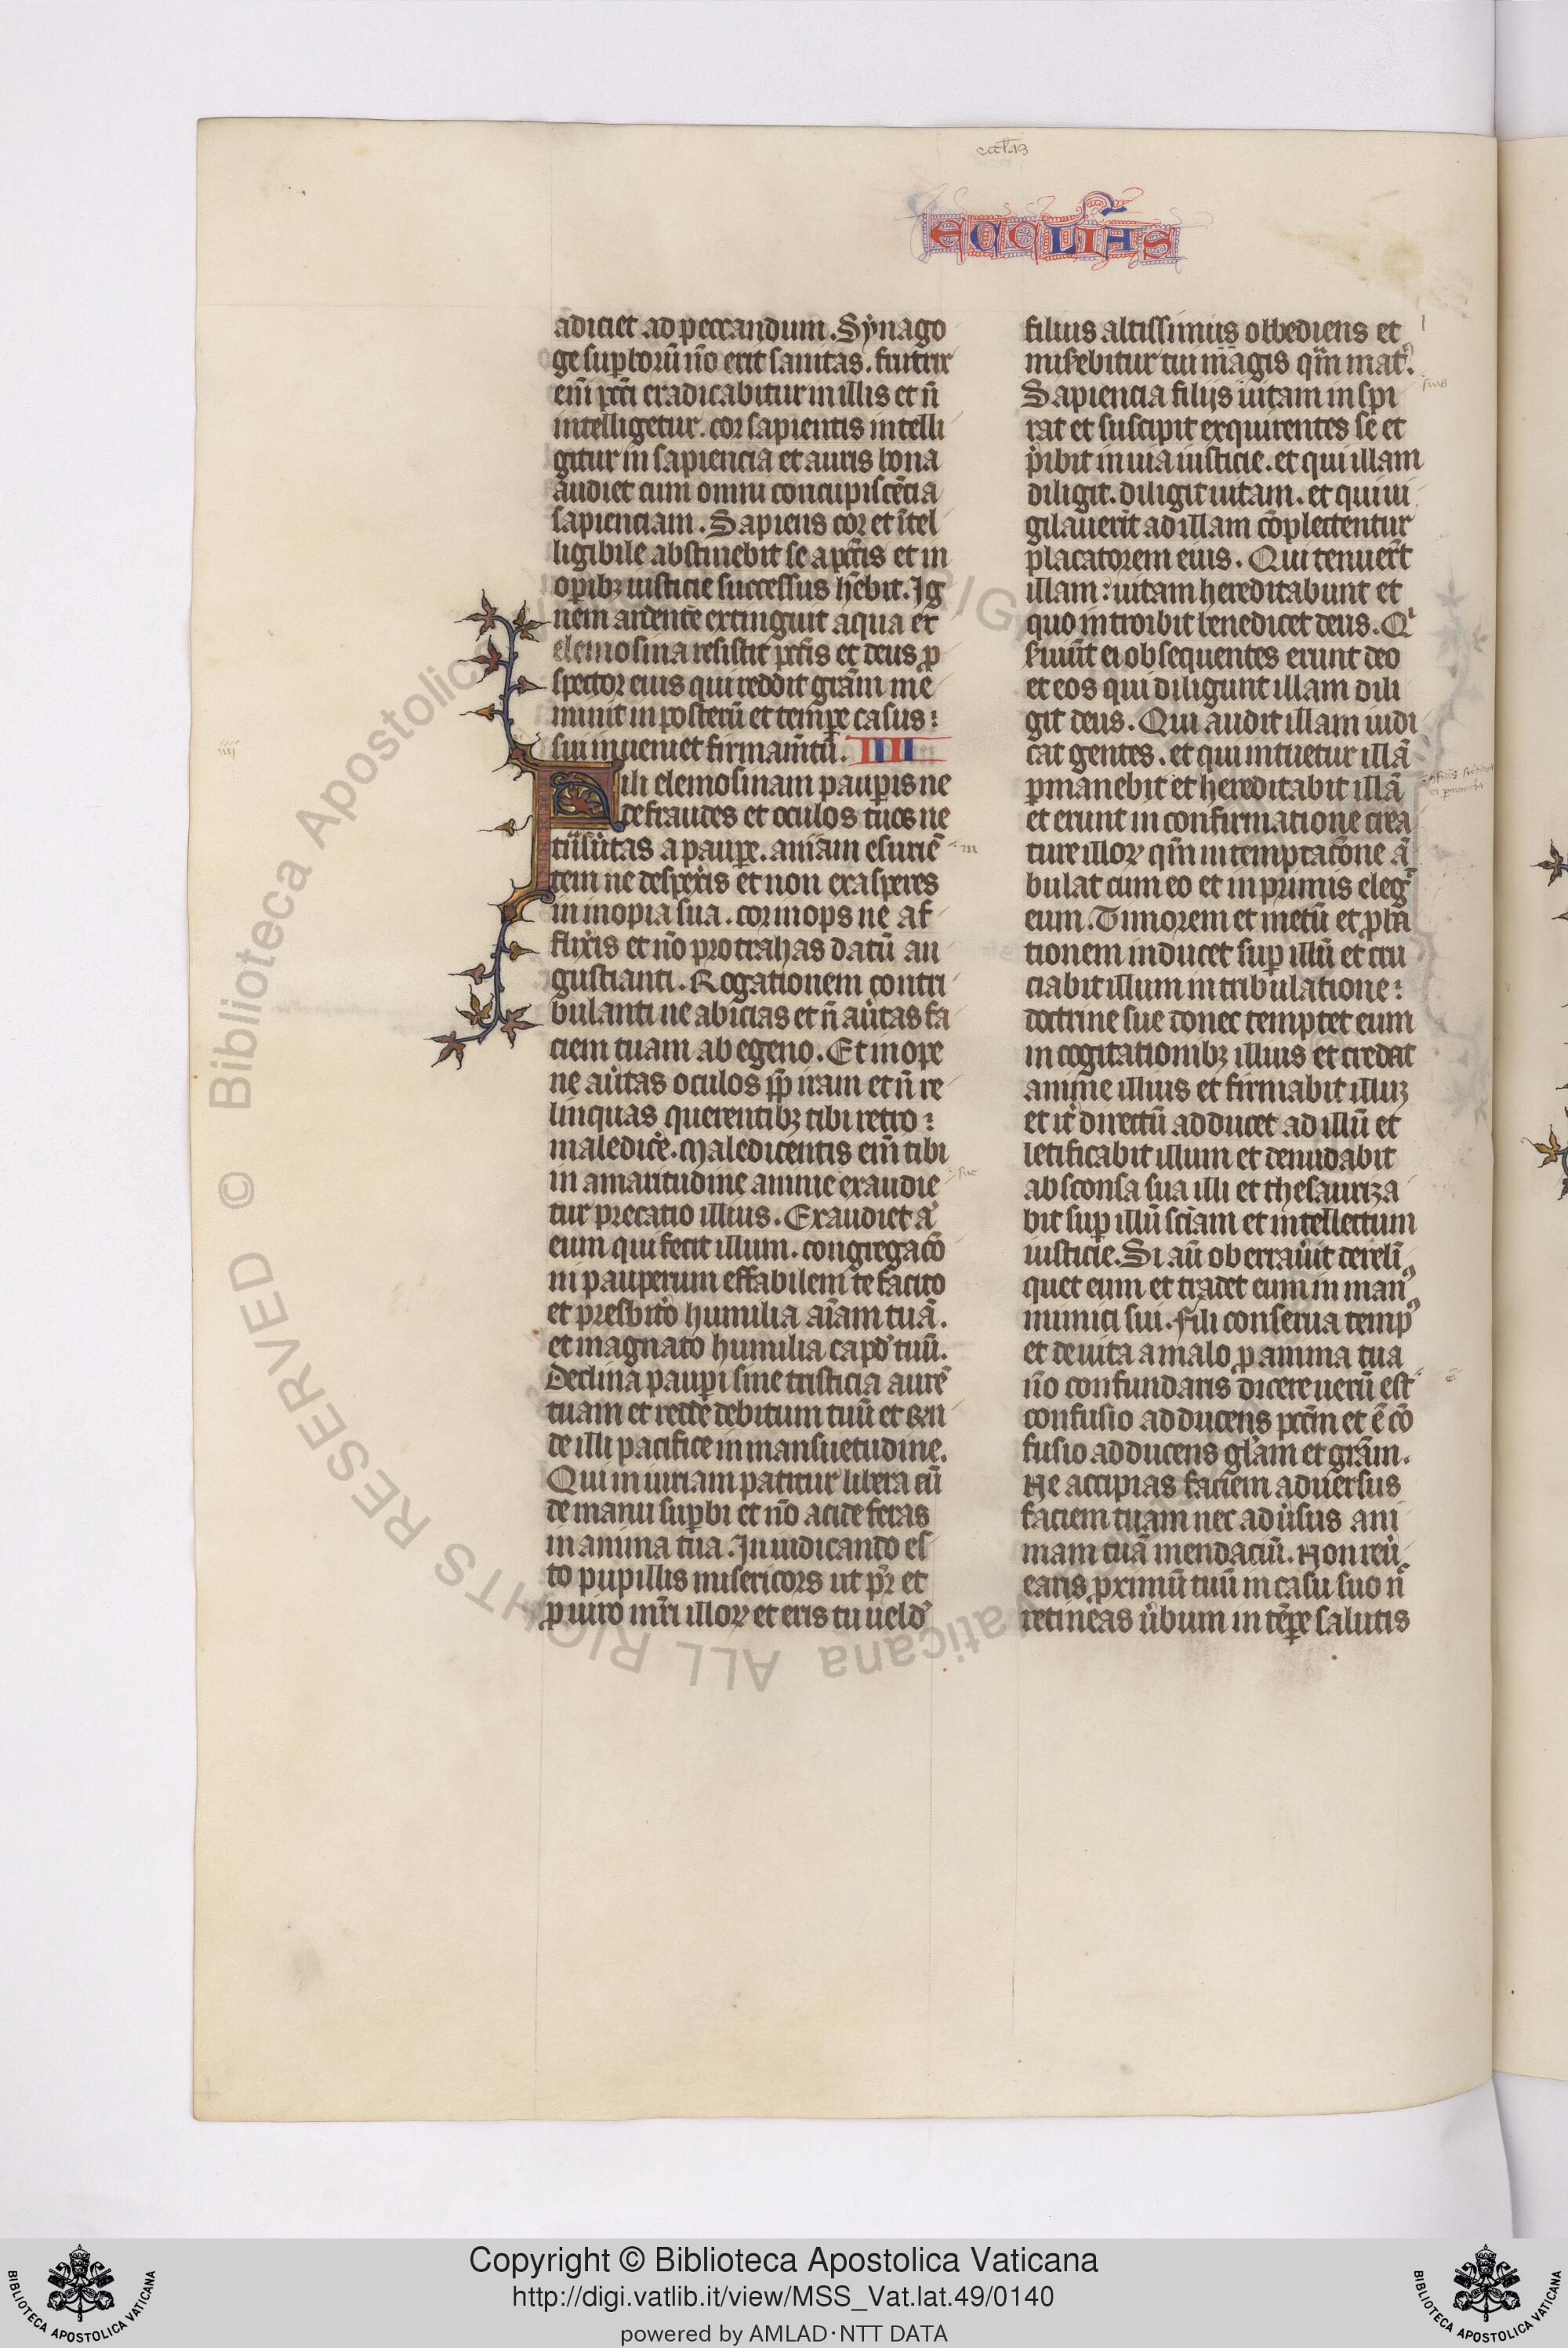 eccl's
ECCLIAS
adiciet ad peccandum. Synago
ge suꝑborū nō erit sanitas. frutex
eni᷑ pcc̄i eradicabitur in illis et n̄
intelligetur. cor sapientis intelli
gitur in sapiencia et auris bona
audiet cum omni concupiscēcia
sapienciam. Sapiens cor et ītel
ligibile abstinebit se a pcc̄is et in
oꝑibꝫ iusticie successus hēbit. Ig
nem ardentē extinguit aqua et
elemosina resistit pcc̄is et deus ꝓ
spector eius qui reddit grām me
minit in posterū et temꝑe casus:
sui inueniet firmam̄tū. IIII
Fili elemosinam pauꝑis ne
defraudes et oculos tuos ne
tn̄suertas a pauꝑe. aniam esuriē
tem ne despexeris et non exasperes
in inopia sua. cor inops ne af
flixeris et nō protrahas datū an
gustianti. Rogationem contri
bulanti ne abicias et n̄ auertas fa
ciem tuam ab egeno. Et inope
ne auertas oculos ꝓp̄ iram et n̄ re
linquas querentibꝫ tibi retro:
maledicere. Maledicentis eni᷑ tibi
in amaritudine anime exaudie
tur precatio illius. Exaudiet āt
eum qui fecit illum. congregacō
ni pauperum effabilem te facito
et presbitero humilia aīam tuā.
et magnato humilia capd' tuū.
Declina pauꝑi sine tristicia aurē
tuam et redde debitum tuū et respon
de illi pacifice in mansuetudine.
Qui iniuriam patitur libera eū
de manu suꝑbi et nō acide feras
in anima tua. In iudicando es
to pupillis misericors ut pr̄ et
ꝓ uiro mr̄i illoꝝ et eris tu uelud'
filius altissimus obediens et
miserebitur tui magis qm̄ mat̄.
Sapiencia filiis uitam inspi
rat et suscipit exquirentes se et
p̄ibit in uia iusticie. et qui illam
diligit. diligit uitam. et qui ui
gilauerīt ad illam cōplectentur
placatorem eius. Qui tenuer̄t
illam: uitam hereditabunt et
quo introibit benedicet deus. Qi
seruiūt ei obsequentes erunt deo
et eos qui diligunt illam dili
git deus. Qui audit illam iudi
cat gentes. et qui intuetur illā
ꝑmanebit et hereditabit illā
et erunt in confirmatione crea
ture illoꝝ qm̄ in temptatōne ā
bulat cum eo et in primis elegit
eum. Timorem et metū et ꝓba
tionem inducet suꝑ illū et cru
ciabit illum in tribulatione:
doctrine sue donec temptet eum
in cogitationibꝫ illius et credat
anime illius et firmabit illuꝫ
et it̄ directū adducet ad illū et
letificabit illum et denudabit
absconsa sua illi et thesauriza
bit suꝑ illū sciam et intellectum
iusticie. Si aū oberrauerit dereliꝰ
quet eum et tradet eum in manꝰ
inimici sui. Fili conserua tempꝰ
et deuita a malo ꝓ anima tua
nō confundaris dicere uerū est
confusio adducens pccm̄ et ē cō
fusio adducens gl'am et grām.
Ne accipias faciem aduersus
faciem tuam nec aduersus ani
mam tuā mendaciū. Non reue
earis ꝓximū tuū in casu suo n
retineas uerbum in tēꝑe salutis
Copyright © Biblioteca Apostolica Vaticana
http://digi.vatlib.it/view/MSS_Vat.lat.49/0140
powered by AMLAD·NTT DATA
BIBLIOTECA APOSTOLICA VATICANA
BIBLIOTECA APOSTOLICA VATICANA